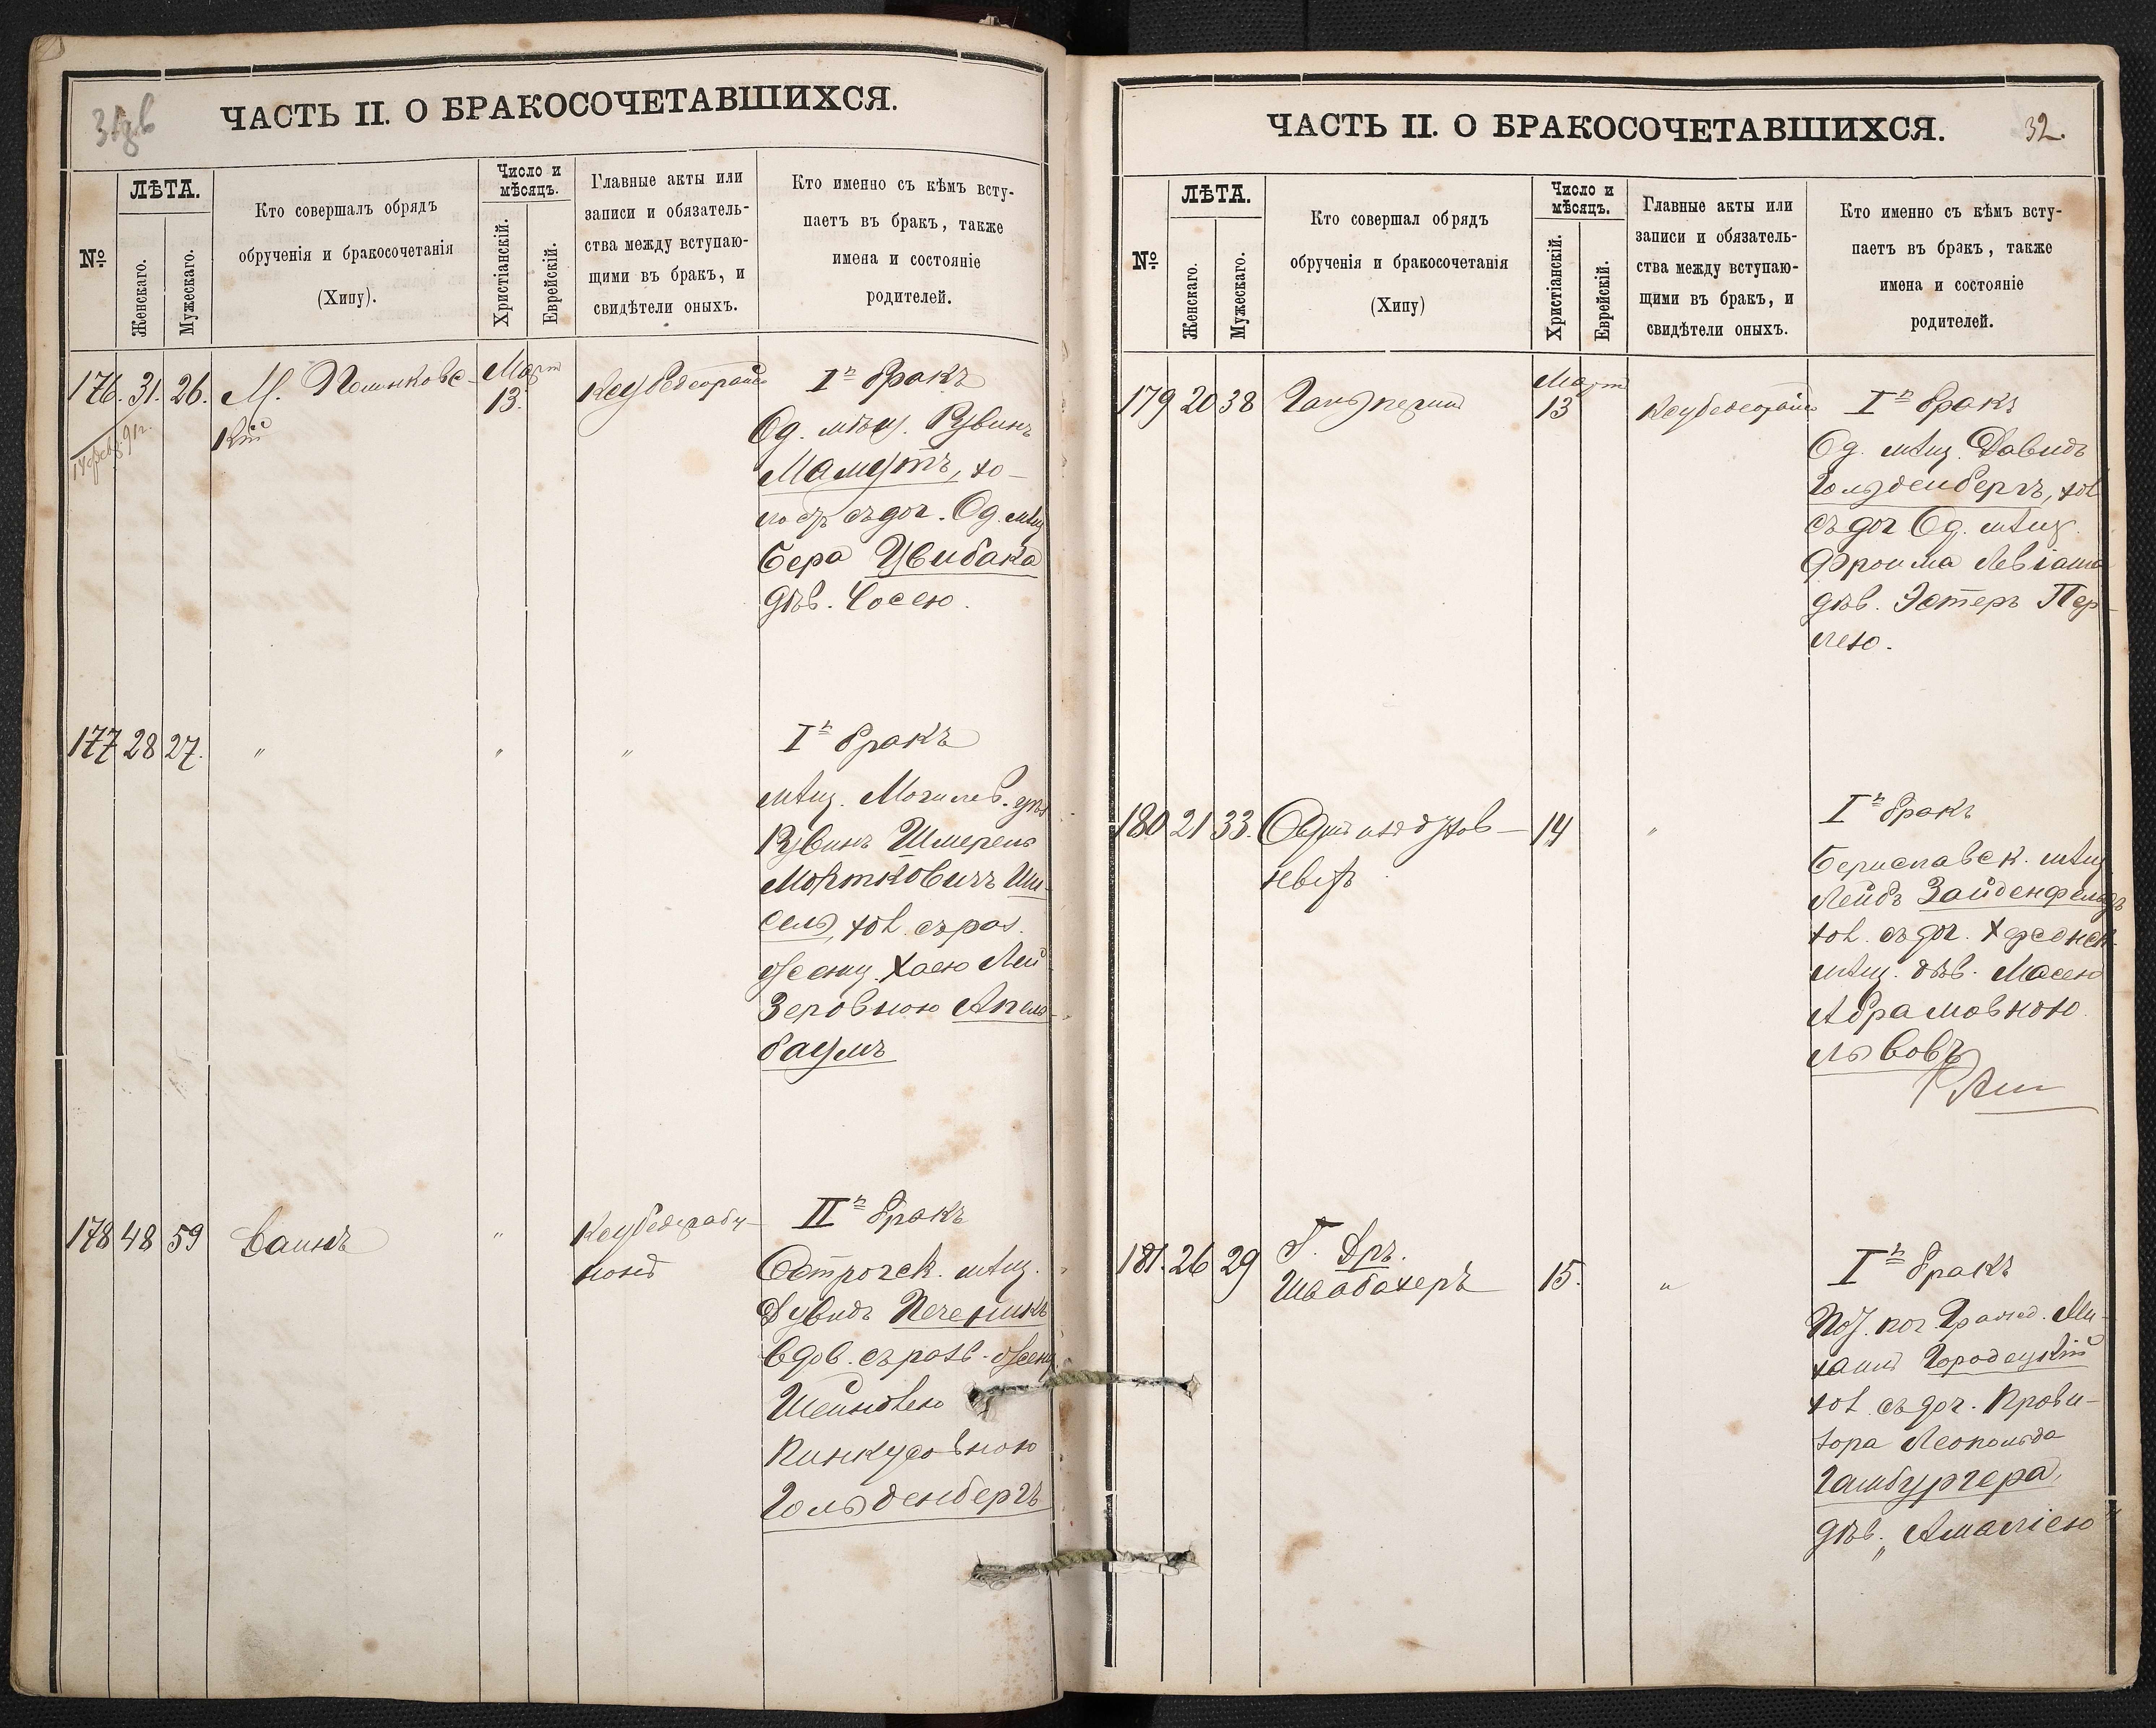 ЧАСТЬ II. О БРАКОСОЧЕТАВШИХСЯ.
№
ЛѢТА.
Женскаго.
Мужескаго.
Кто совершалъ обрядъ
обрученія и бракосочетанія
(Хипу).
Число и
мѣсяцъ.
Христіанскій.
Еврейскій.
Главные акты или
записи и обязатель-
ства между вступаю-
щими въ бракъ, и
свидѣтели оныхъ.
Кто именно съ кѣмъ всту-
паетъ въ бракъ, также
имена и состояніе
родителей.
176. 31. 26. М. Полинковс-
кій
Март
13.
I й бракъ
Од. мѣщ. Рувинъ
Мамутъ, хо-
лост съ доч. Од. мѣщ
Бера Цвибака
дѣв. Сосею.
177 28 27. " " "
I й бракъ
мѣщ. Могилев. губ
Рувинъ Шмерель
Мортковичъ Ши-
сель, хол. съ раз.
женщ. Хаею Лей
Зеровною Апель-
баумъ
178 48 59 Ваинъ "
II й бракъ
Острогск. мѣщ.
Дувидъ Печеникъ
вдов. съ разв. женщ.
Шейндлею
Пинкусовною
Гольденбергъ
ЧАСТЬ II. О БРАКОСОЧЕТАВШИХСЯ.
32.
№
ЛѢТА.
Женскаго.
Мужескаго.
Кто совершал обрядъ
обрученія и бракосочетанія
(Хипу)
Число и
мѣсяцъ.
Христіанскій.
Еврейскій.
Главные акты или
записи и обязатель-
ства между вступаю-
щими въ бракъ, и
свидѣтели оныхъ.
Кто именно съ кѣмъ всту-
паетъ въ бракъ, также
имена и состояніе
родителей.
179 20 38 Гальперинъ
Март
13
I й бракъ
Од. мѣщ. Давидъ
Гольденбергъ, хол
съ доч Од. мѣщ.
Фроима Левіана
дѣв. Эстеръ Пер-
лею.
180 21 33. 14 "
I й бракъ
Бериславск. мѣщ
Лейбъ Зайденфельдъ
хол. съ доч. Херсонск.
мѣщ. дѣв. Масею
Абрамовною
Львовъ
181. 26 29 Г. Дръ.
Швабахеръ 15. "
I й бракъ
Пот. поч. Гражд. Ми-
хаилъ Городецкій
хол. съ доч. Прови-
зора Леопольда
Гамбургера,
дѣв. „Амаліею"